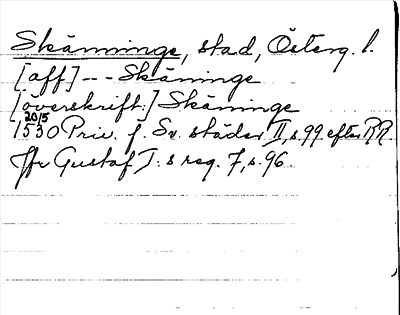 Skänninge, stad, Österg. l.
[aff] - - - Skäninge
[överskrift:] Skäninge
20/5
1530 Priv. f. Sv. städer II, s. 99 efter R.R.
Jfr Gustaf I:s reg. 7, s. 96.